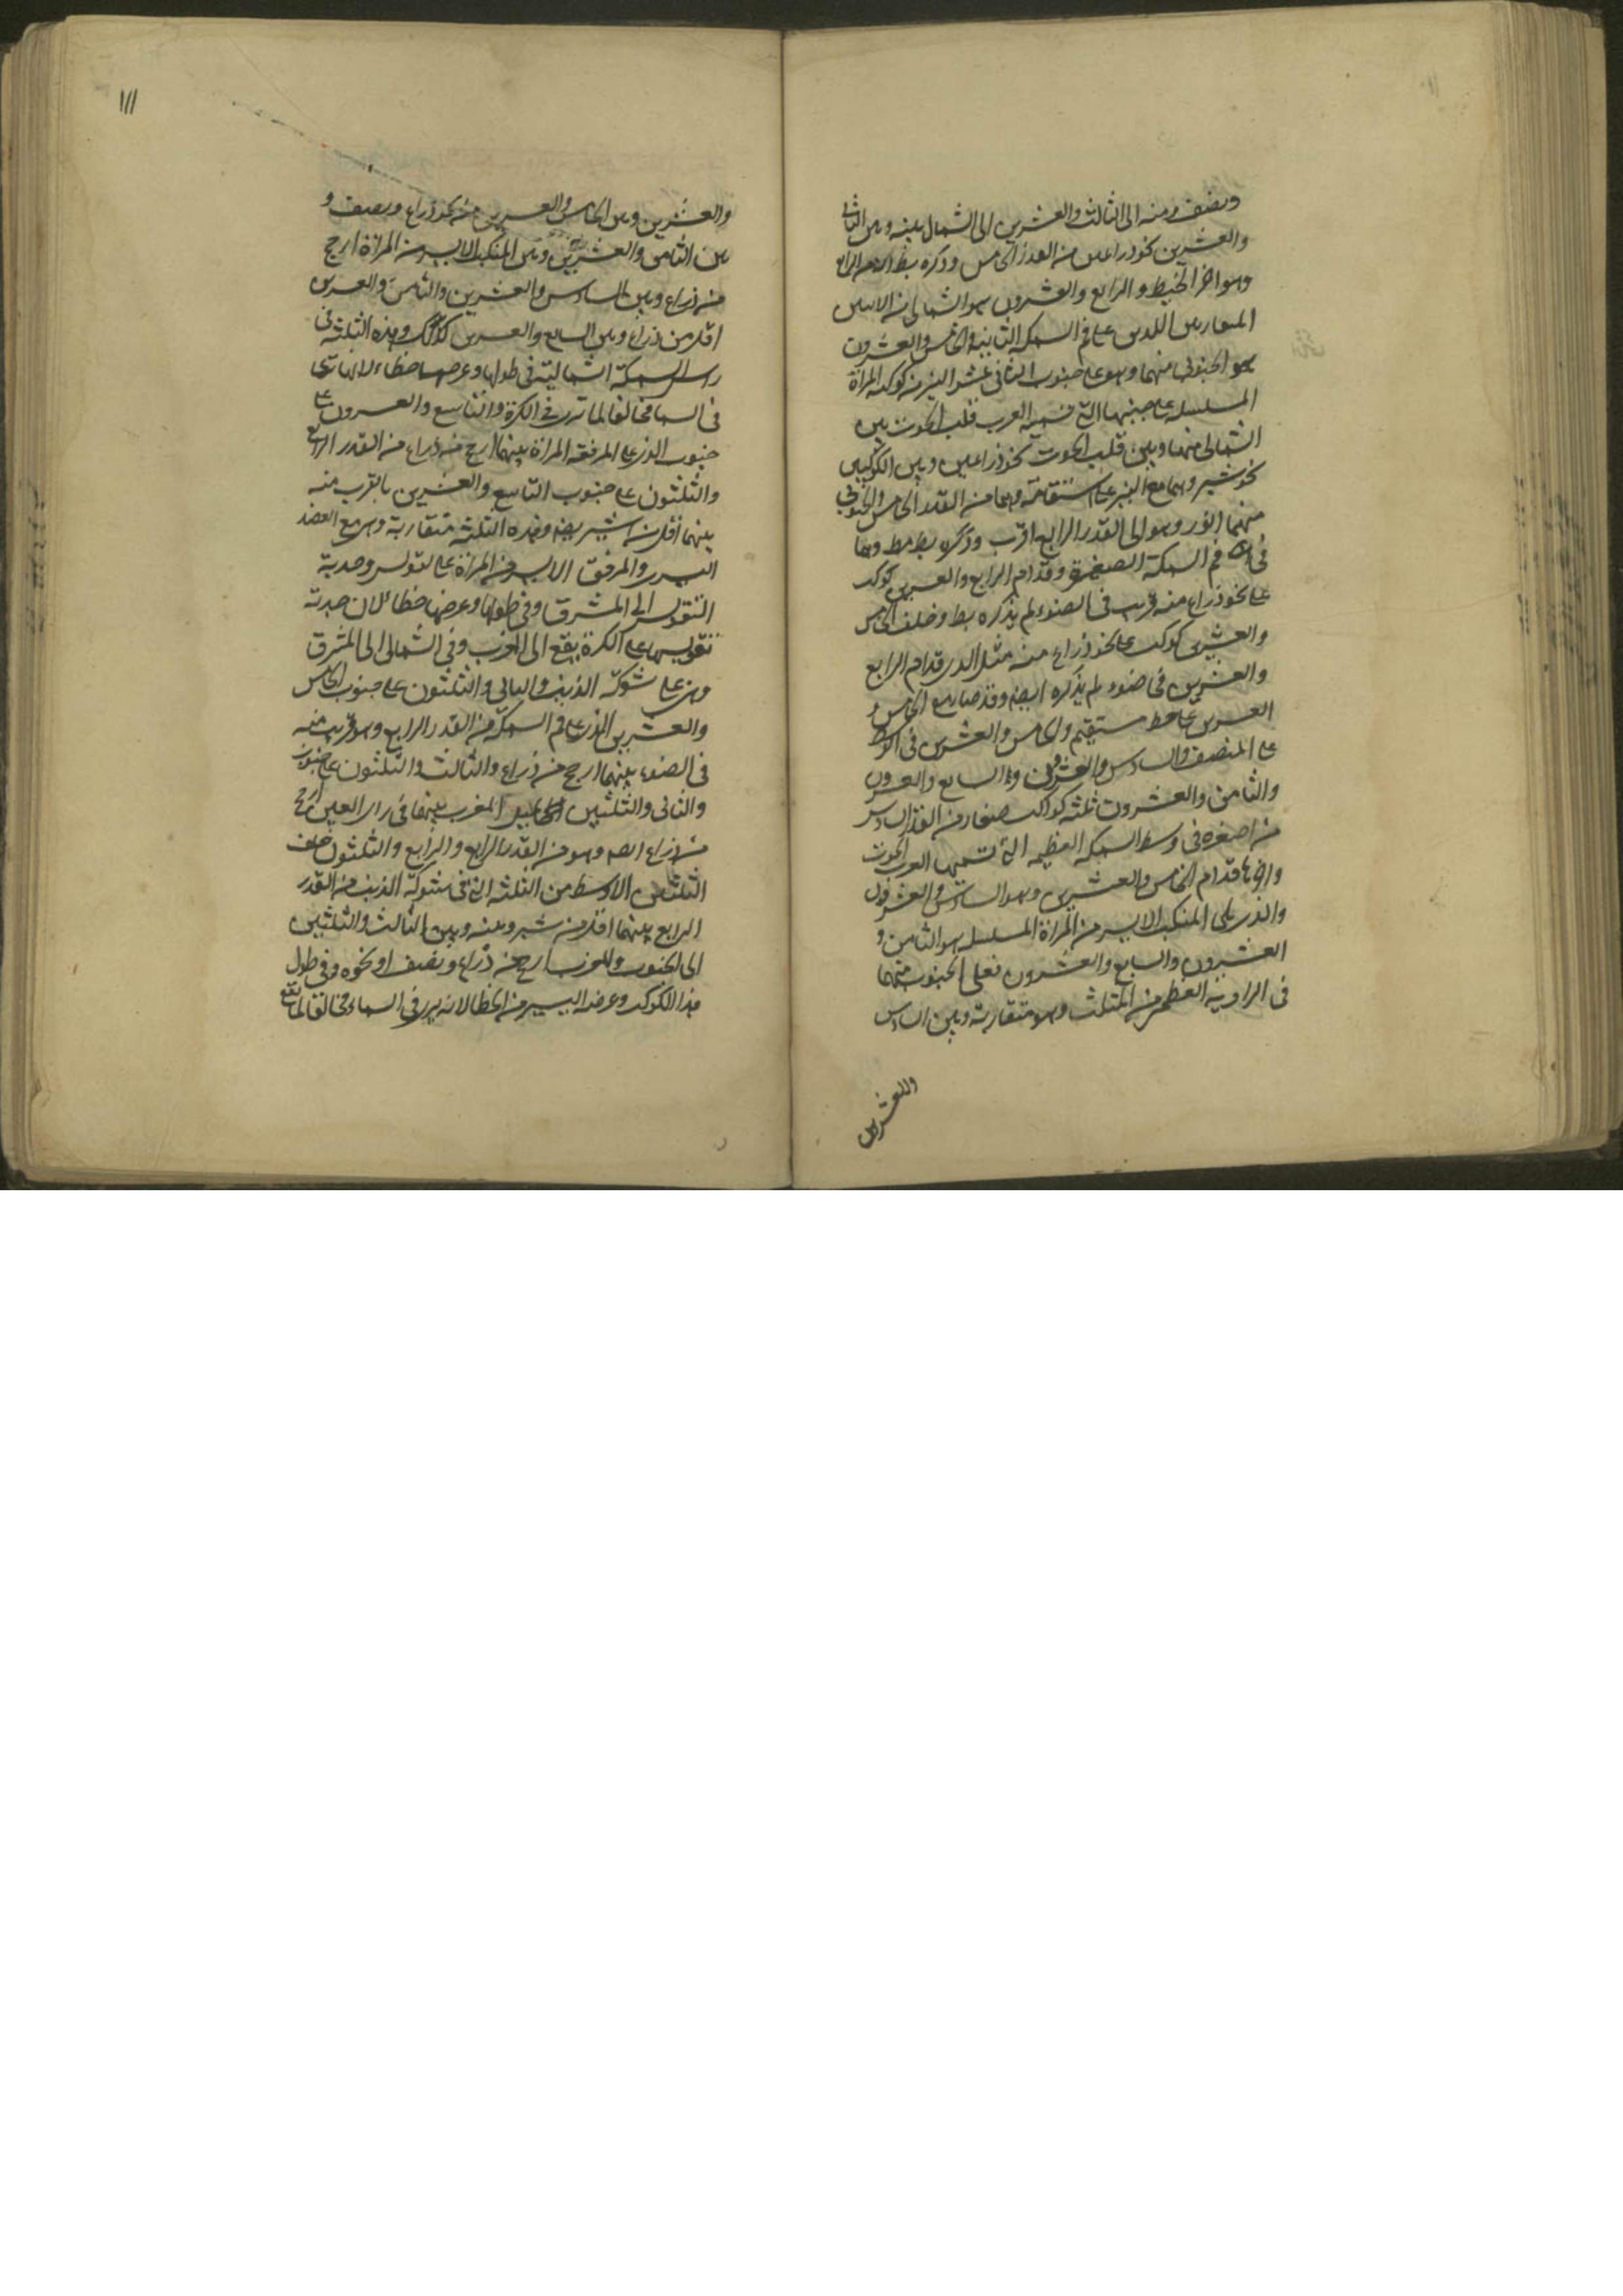 ونصف ومنه الى الثالث والعشرين الى الشمال بينه وبين الثانى
والعشرين نحو ذراعين من القدر الخامس وذكره بط انه من الرابع
وهو اخر الخيط والرابع والعشرون هو الشمالى من الاثنين
المتقاربين اللذين على فم السمكة الثانية والخامس والعشرون
هو الجنوبى منهما وهو على جنوب الثانى عشر النير من كوكبة المراة
المسلسلة على جنبها التى تسميه العرب قلب الحوت بين
الشمالى منهما وبين قلب الحوت نحو ذراعين وبين الكوكبين
نحو شبر وهما مع النير على استقامة وهما من القدر الخامس والجنوبى
منهما انور وهو الى القدر الرابع اقرب وذكره بط وهما
فى فم السمكة الصغيرة وقدام الرابع والعشرين كوكب
على نحو ذراع منه قريب فى الضوء لم يذكره بط وخلف الخامس
والعشرين كوكب على نحو ذراع منه مثل الذى قدام الرابع
والعشرين فى ضوء لم يذكره ايضا وقد صار مع الخامس و
العشرين على خط مستقيم والخامس والعشرين فى الوسط
على المنتصف والسادس والعشرون والسابع والعشرون
والثامن والعشرون ثلثة كواكب صغار من القدر السادس
من اصغره فى وسط السمكة العظيمة التى تسميها العرب الحوت
قدام الخامس والعشرين وهو السادس والعشرون
والذى يلى المنكب الايسر من المراة المسلسلة هو الثامن و
العشرون والسابع والعشرون فعلى الجنوب منهما
فى الزاوية العظمى من المثلث وهو متقاربة وبين السادس
والعشرين
١١١
والعشرين وبين الخامس والعشرين نحو ذراع ونصف و
بين الثامن والعشرين وبين المنكب الايسر من المراة ارجح
من ذراع وبين السادس والعشرين والثامن والعشرين
اقل من ذراع وبين السابع والعشرين كذلك وهذه الثلثة فى
راس السمكة الشمالية فى طولها وعرضها خطاء لانها ترى
فى السما مخالفا لما ترى فى الكرة والتاسع والعشرون على
جنوب الذى على المرفقة المراة بينهما ارجح من ذراع من القدر الرابع
والثلثون على جنوب التاسع والعشرين بالقرب منه
بينهما اقل من شبر وهذه الثلثة متقاربة وهى مع العضد
اليسرى والمرفق الايسر من المراة على تقويس وحدبة
التقويس الى المشرق وفى طولها وعرضها خطا لان حدبة
تقويسها على الكرة يقع الى المغرب وفى الشمالى الى المشرق
وهى على شوكة الذنب والثانى والثلثون على جنوب الخامس
والعشرين الذى على فم السمكة من القدر الرابع وهو قريب منه
فى الضوء بينهما ارجح من ذراع والثالث والثلثون على جنوب
والثانى والثلثين المغرب بينهما فى راى العين ارجح
من ذراع ايضا وهو من القدر الرابع والرابع والثلثون خلف
الثلثين الاوسط من الثلثة التى فى شوكة الذنب من القدر
الرابع بينهما اقل من شبر وبينه وبين الثالث والثلثين
الى الجنوب والمغرب ارجح من ذراع ونصف او نحوه وفى طول
هذا الكوكب وعرضه اليسير من الخطا لانه يرى فى السماء مخالفا لما يقع